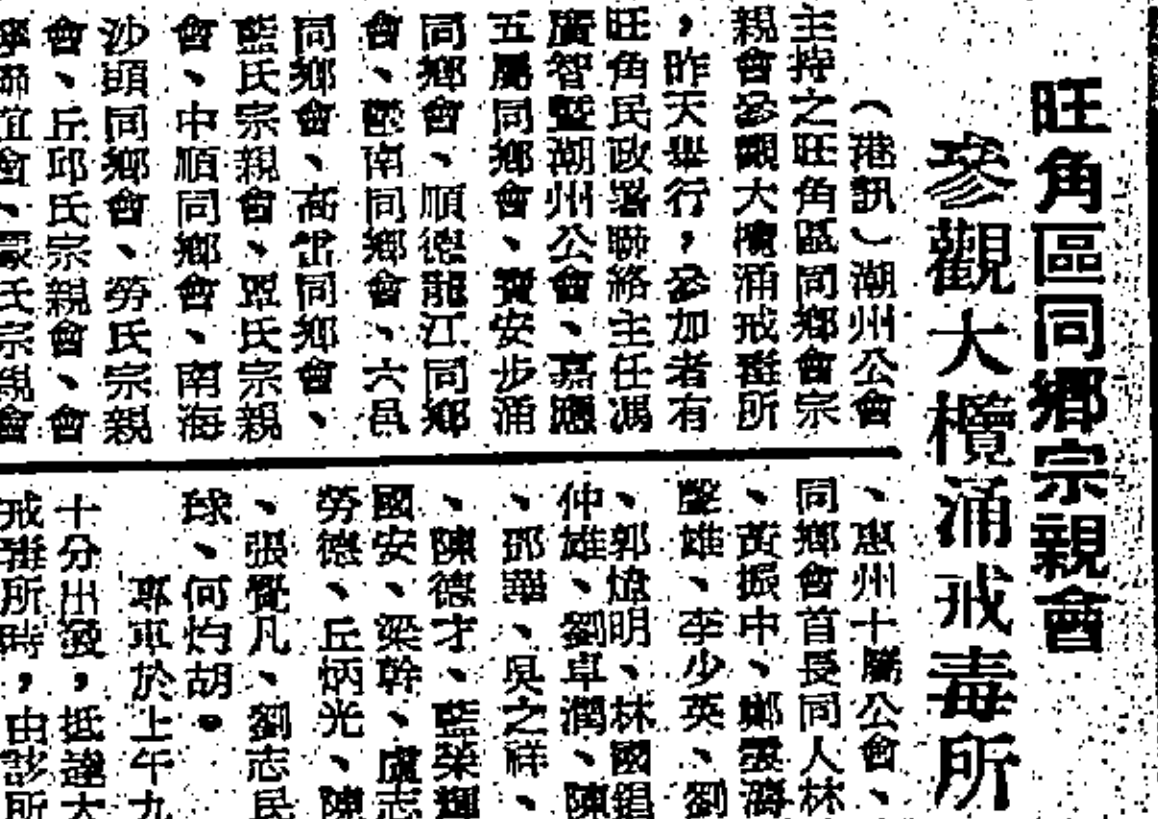 旺角區同鄉宗親會
參觀大欖涌戒毒所
(港訊)潮州公會
主持之旺角區同鄉會宗
親會參觀大欖涌戒毒所
,昨天舉行,參加者有
旺角民政署聯絡主任馮
廣智暨潮州公會、嘉應
五屬同鄉會、寶安步涌
同鄉會、順德龍江同鄉
會、鬱南同鄉會、六邑
同鄉會、高雷同鄉會、
藍氏宗親會、氏宗親
會、中順同鄉會、南海
沙頭同鄉會、勞氏宗親
會、丘邱氏宗親會、會
寧聯誼會、氏宗親會
、惠州十屬公會、
同鄉會首長同人林
、黃振中、鄭雲
聲雄、李少英、劉
、郭明、林國
仲雄、劉卓潤、陳
、鄧華、吳之祥、
、陳德才、藍榮輝
國安、梁幹、盧志
勞德、丘炳光、陳
、張覺凡、劉志民
球、何灼胡。
專車於上午九
十分出發,抵達大
戒毒所時,由該所